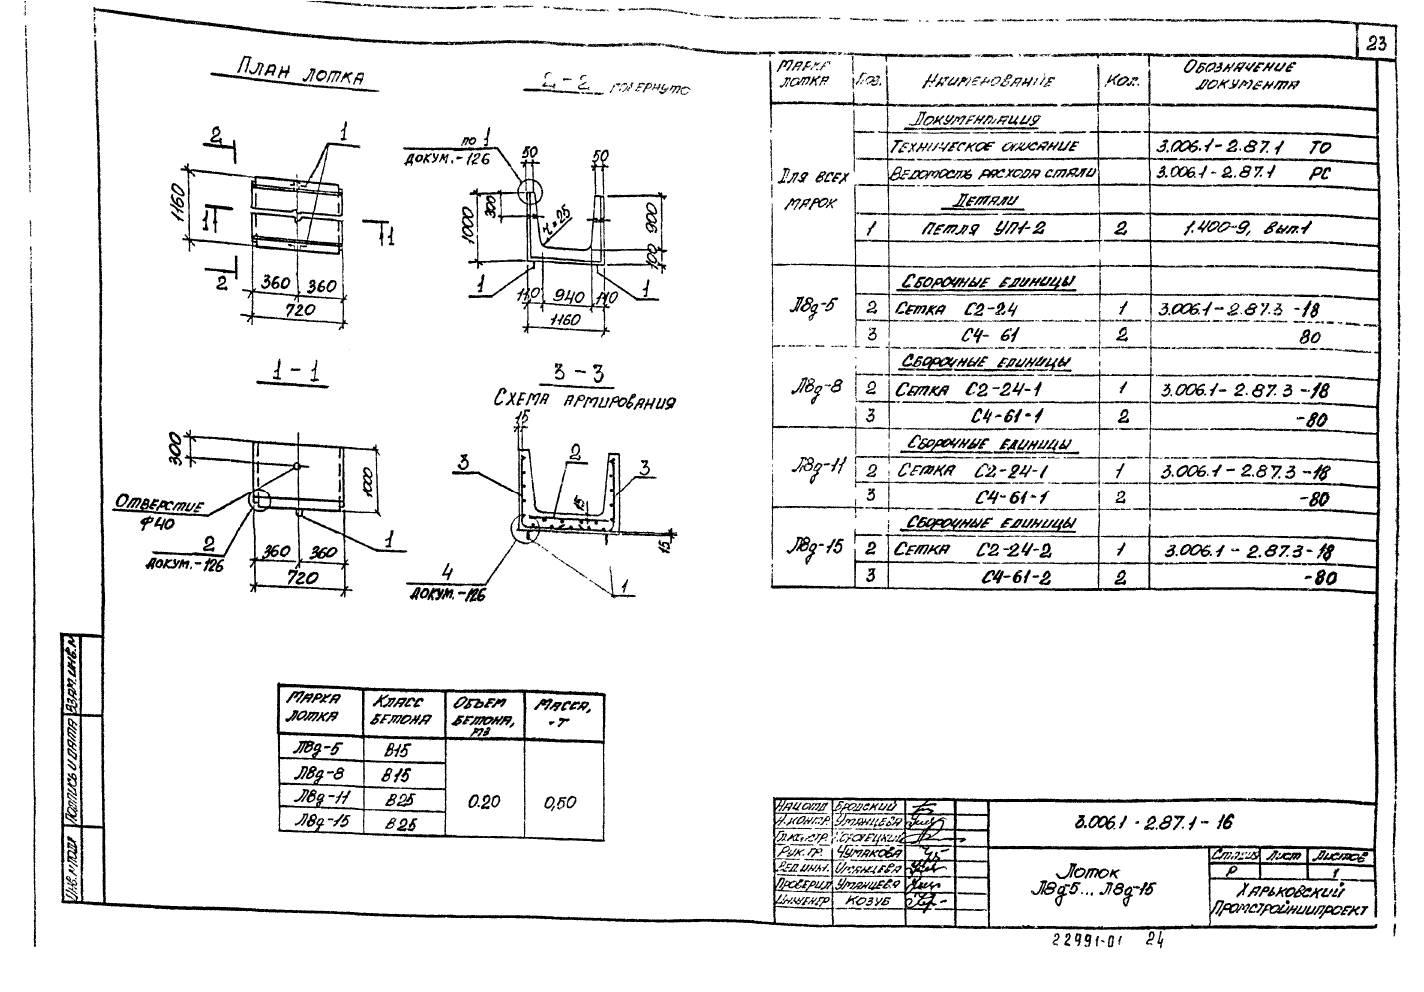 23
План лотка
2
1
1160
1
1
2
360 360
720
2-2 повернуто
по 1
докум.-126
50 50
1000
300
r=25
900
100
1 1
110 940 110
1160
1-1
300
1000
Отверстие
Ф40
2
докум.-126
1
360 360
720
3-3
Схема армирования
15
3 2 3
15
15
4
докум.-126
1
Марка лотка Поз. Наименование Кол. Обозначение документа
Для всех марок
Документация
Техническое описание 3.006.1-2.87.1 ТО
Ведомость расхода стали 3.006.1-2.87.1 РС
Детали
1 Петля УП1-2 2 1.400-9, Вып.1
Л8д-5
Сборочные единицы
2 Сетка С2-24 1 3.006.1-2.87.3 -18
3 С4-61 2 80
Л8д-8
Сборочные единицы
2 Сетка С2-24-1 1 3.006.1-2.87.3 -18
3 С4-61-1 2 -80
Л8д-11
Сборочные единицы
2 Сетка С2-24-1 1 3.006.1-2.87.3-18
3 С4-61-1 2 -80
Л8д-15
Сборочные единицы
2 Сетка С2-24-2 1 3.006.1-2.87.3-18
3 С4-61-2 2 -80
Марка лотка Класс бетона Объем бетона, м3 Масса, т
Л8д-5 В15
Л8д-8 В15
Л8д-11 В25 0.20 0,50
Л8д-15 В25
Взам.инв.№
Подпись и дата
Инв.№ подл
Нач.отд Бродский
Н.контр. Уманцева
Рук.гр. Чумакова
Вед.инж. Уманцева
Проверил Уманцева
Инженер Козуб
3.006.1-2.87.1-16
Лоток
Л8д-5... Л8д-15
Стадия Лист Листов
Р 1
Харьковский
Промстройниипроект
22991-01 24